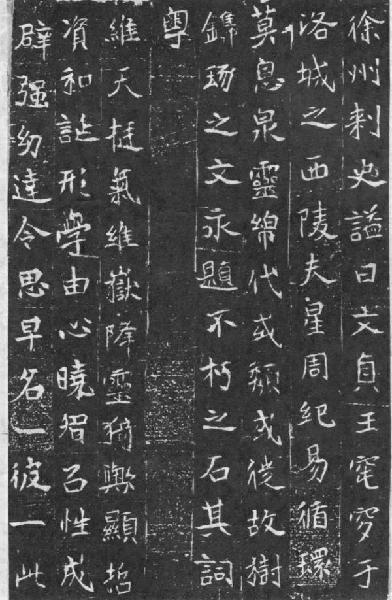 徐州刺史謚曰文貞王窀穸于
洛城之西陵夫星周紀易循環
莫息泉靈綿代或頹或徙故樹
鐫琢之文永題不朽之石其詞
粤
維天挺氣維嶽降靈猗歟顯哲
資和誕形學由心曉智㠯性成
辟强幼達令思早名一彼一此